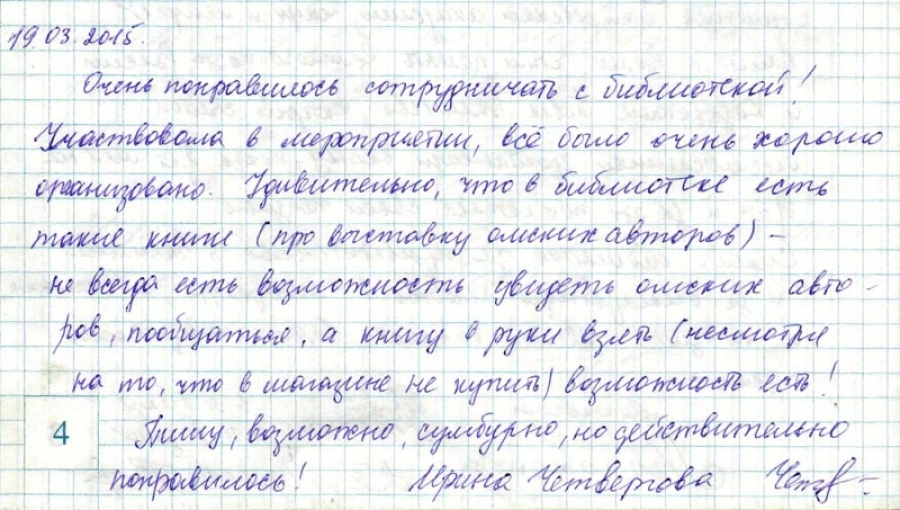 19.03.2015.
Очень понравилось сотрудничать с библиотекой!
Участвовала в мероприятии, всё было очень хорошо
организовано. Удивительно, что в библиотеке есть
такие книги (про выставку омских авторов) –
не всегда есть возможность увидеть омских авто-
ров, пообщаться, а книгу в руки взять (несмотря
на то, что в магазине не купить) возможность есть!
4
Пишу, возможно, сумбурно, но действительно
понравилось! Ирина Четвергова